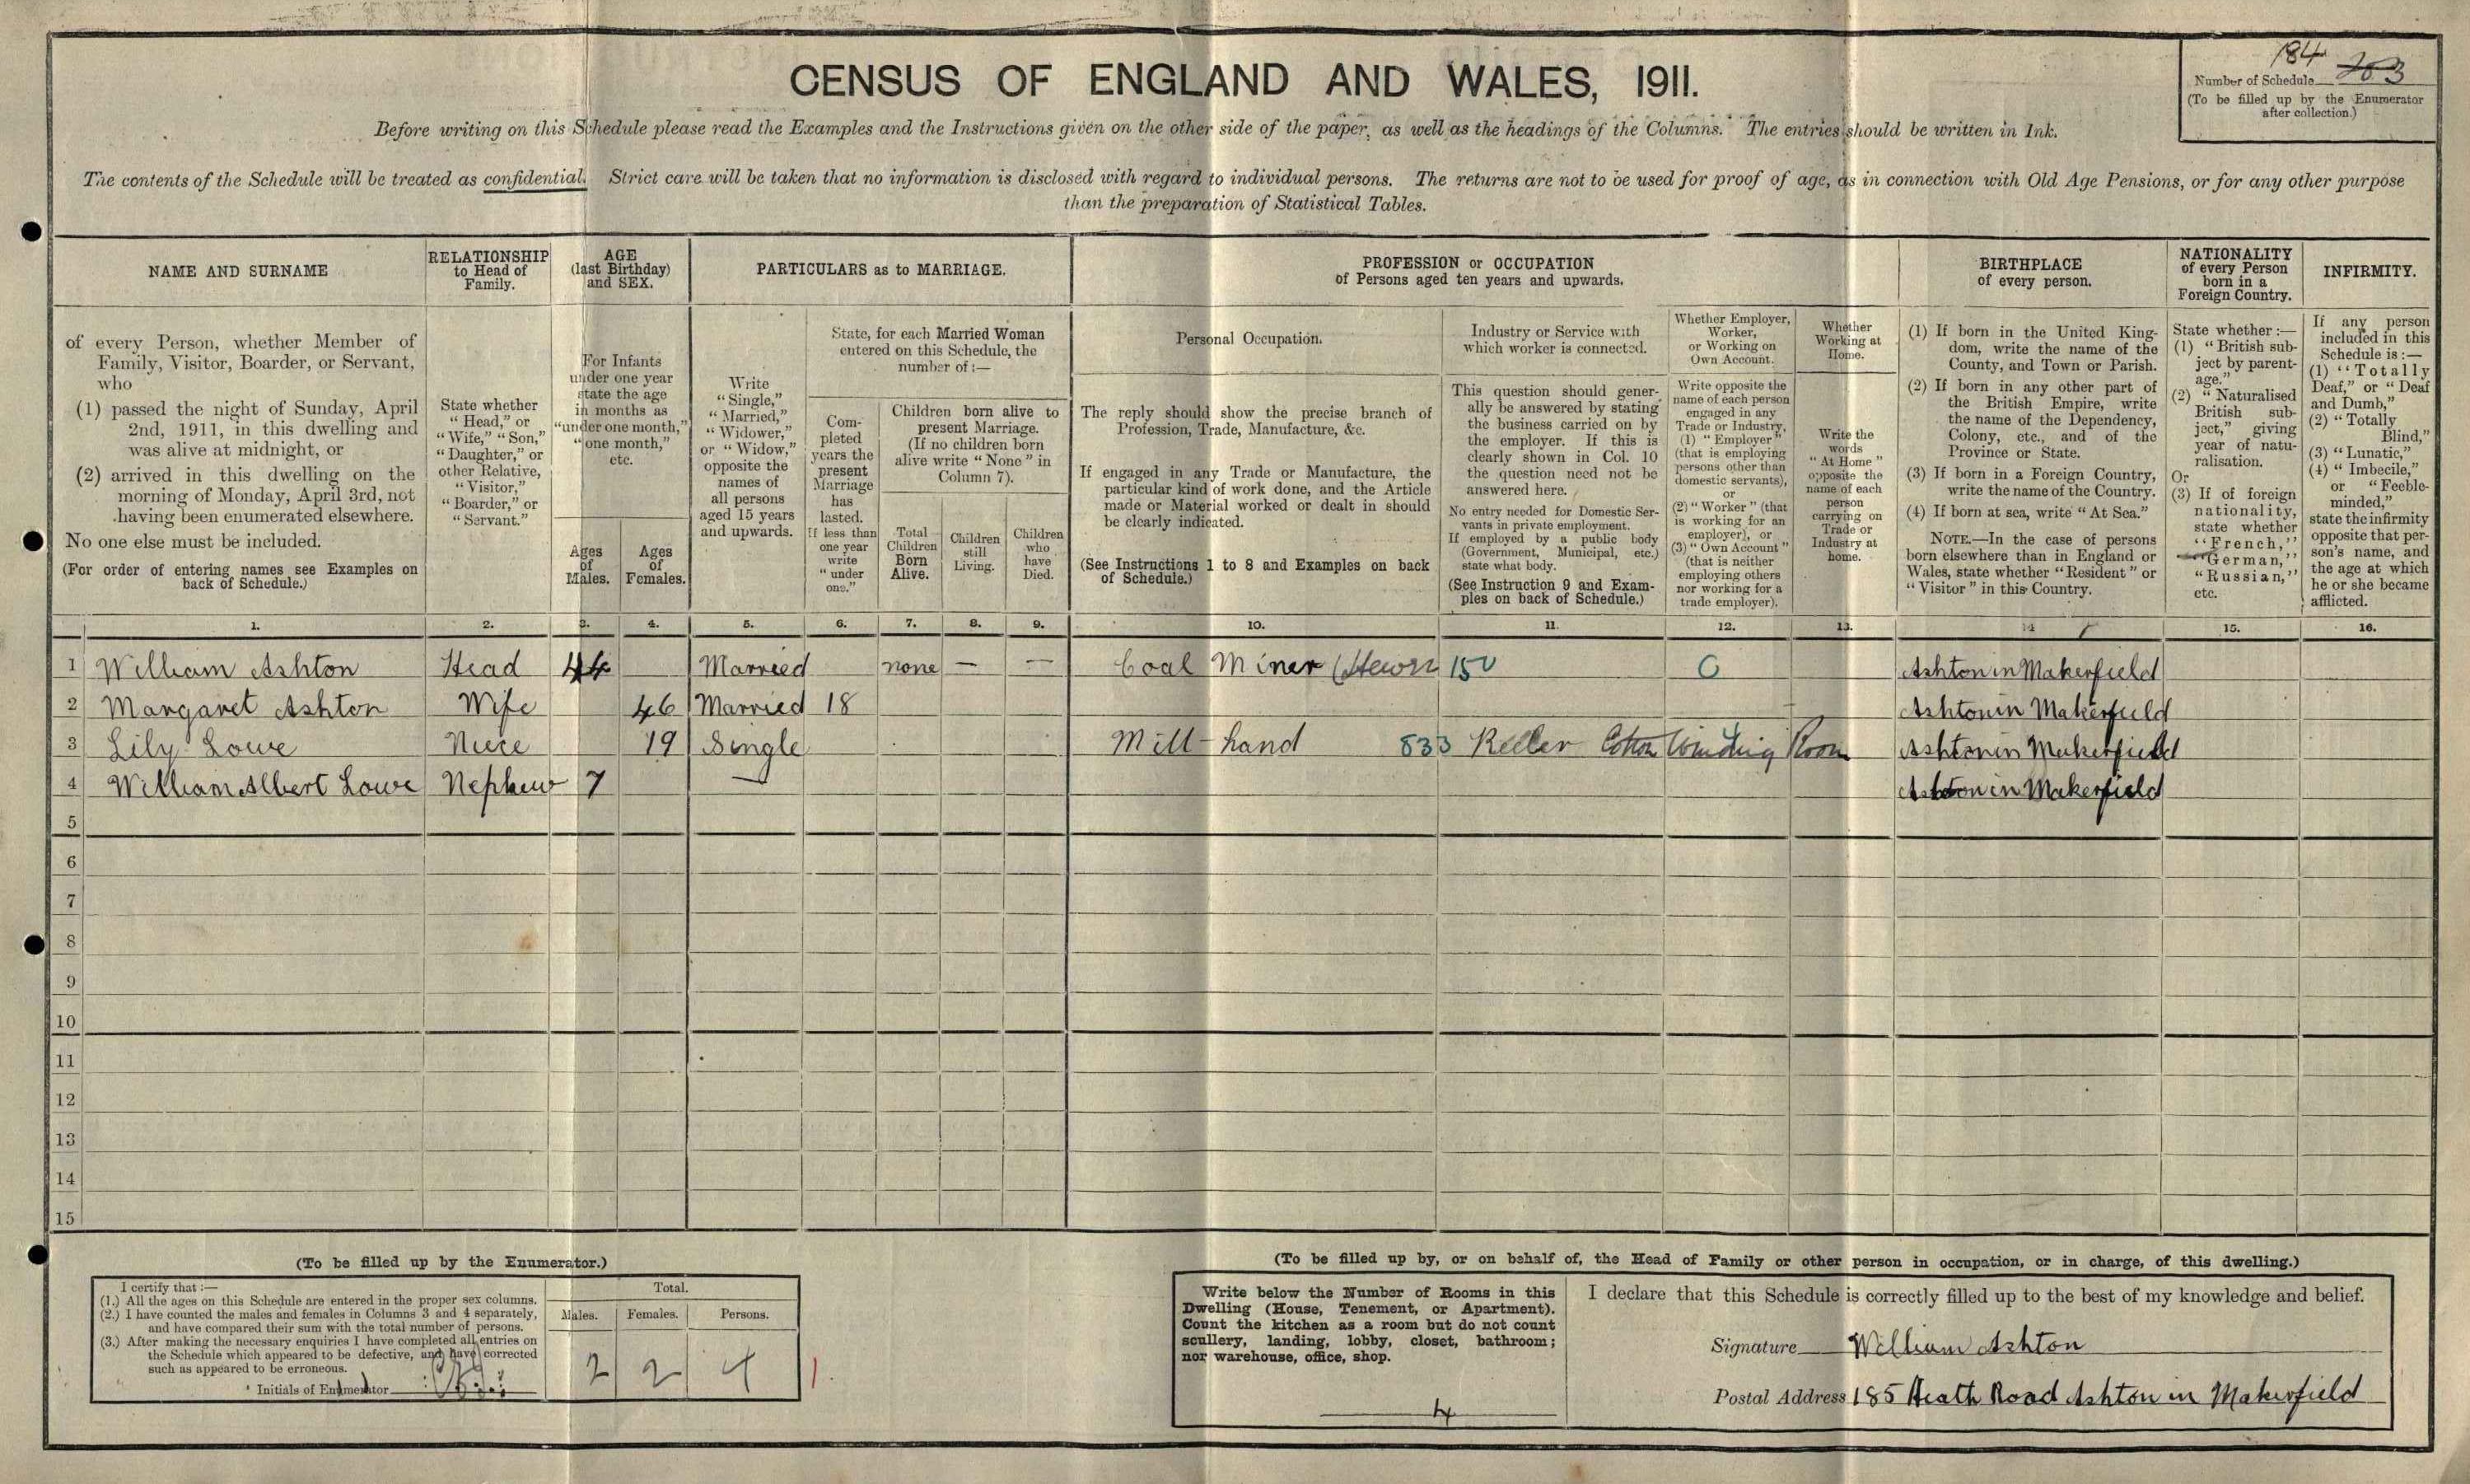 CENSUS OF ENGLAND AND WALES, 1911.
184
Number of Schedule 203
(To be filled up by the Enumerator
after collection.)
Before writing on this Schedule please read the Examples and the Instructions given on the other side of the paper, as well as the headings of the Columns. The entries should be written in Ink.
The contents of the Schedule will be treated as confidential. Strict care will be taken that no information is disclosed with regard to individual persons. The returns are not to be used for proof of age, as in connection with Old Age Pensions, or for any other purpose
than the preparation of Statistical Tables.
NAME AND SURNAME
of every Person, whether Member of
Family, Visitor, Boarder, or Servant,
who
(1) passed the night of Sunday, April
2nd, 1911, in this dwelling and
was alive at midnight, or
(2) arrived in this dwelling on the
morning of Monday, April 3rd, not
having been enumerated elsewhere.
No one else must be included.
(For order of entering names see Examples on
back of Schedule.)
RELATIONSHIP
to Head of
Family.
State whether
"Head," or
"Wife," "Son,"
"Daughter," or
other Relative,
"Visitor,"
"Boarder," or
"Servant."
AGE
(last Birthday)
and SEX.
For Infants
under one year
state the age
in months as
"under one month,"
"one month,"
etc.
Ages
of
Males.
Ages
of
Females.
PARTICULARS as to MARRIAGE.
Write
"Single,"
"Married,"
"Widower,"
or "Widow,"
opposite the
names of
all persons
aged 15 years
and upwards.
State, for each Married Woman
entered on this Schedule, the
number of:—
Com-
pleted
years the
present
Marriage
has
lasted.
If less than
one year
write
"under
one."
Children born alive to
present Marriage.
(If no children born
alive write "None" in
Column 7).
Total
Children
Born
Alive.
Children
still
Living.
Children
who
have
Died.
PROFESSION or OCCUPATION
of Persons aged ten years and upwards.
Personal Occupation.
The reply should show the precise branch of
Profession, Trade, Manufacture, &c.
If engaged in any Trade or Manufacture, the
particular kind of work done, and the Article
made or Material worked or dealt in should
be clearly indicated.
(See Instructions 1 to 8 and Examples on back
of Schedule.)
Industry or Service with
which worker is connected.
This question should gener-
ally be answered by stating
the business carried on by
the employer. If this is
clearly shown in Col. 10
the question need not be
answered here.
No entry needed for Domestic Ser-
vants in private employment.
If employed by a public body
(Government, Municipal, etc.)
state what body.
(See Instruction 9 and Exam-
ples on back of Schedule.)
Whether Employer,
Worker,
or Working on
Own Account.
Write opposite the
name of each person
engaged in any
Trade or Industry,
(1) "Employer"
(that is employing
persons other than
domestic servants),
or
(2) "Worker" (that
is working for an
employer), or
(3) "Own Account"
(that is neither
employing others
nor working for a
trade employer).
Whether
Working at
Home.
Write the
words
"At Home"
opposite the
name of each
person
carrying on
Trade or
Industry at
home.
BIRTHPLACE
of every person.
(1) If born in the United King-
dom, write the name of the
County, and Town or Parish.
(2) If born in any other part of
the British Empire, write
the name of the Dependency,
Colony, etc., and of the
Province or State.
(3) If born in a Foreign Country,
write the name of the Country.
(4) If born at sea, write "At Sea."
NOTE.—In the case of persons
born elsewhere than in England or
Wales, state whether "Resident" or
"Visitor" in this Country.
NATIONALITY
of every Person
born in a
Foreign Country.
State whether:—
(1) "British sub-
ject by parent-
age."
(2) "Naturalised
British sub-
ject," giving
year of natu-
ralisation.
Or
(3) If of foreign
nationality,
state whether
"French,"
"German,"
"Russian,"
etc.
INFIRMITY.
If any person
included in this
Schedule is:—
(1) "Totally
Deaf," or "Deaf
and Dumb,"
(2) "Totally
Blind,"
(3) "Lunatic,"
(4) "Imbecile,"
or "Feeble-
minded,"
state the infirmity
opposite that per-
son's name, and
the age at which
he or she became
afflicted.
1. 2. 3. 4. 5. 6. 7. 8. 9. 10. 11. 12. 13. 14 15. 16.
1 William Ashton Head 44 Married none — — Coal Miner (Hewer 150 O Ashton in Makerfield
2 Margaret Ashton Wife 46 Married 18 Ashton in Makerfield
3 Lily Lowe Niece 19 Single Mill-hand 833 Reeler Cotton Winding Room Ashton in Makerfield
4 William Albert Lowe Nephew 7 — Ashton in Makerfield
5
6
7
8
9
10
11
12
13
14
15
(To be filled up by the Enumerator.)
I certify that:—
(1.) All the ages on this Schedule are entered in the proper sex columns.
(2.) I have counted the males and females in Columns 3 and 4 separately,
and have compared their sum with the total number of persons.
(3.) After making the necessary enquiries I have completed all entries on
the Schedule which appeared to be defective, and have corrected
such as appeared to be erroneous.
Initials of Enumerator
Total.
Males. Females. Persons.
2 2 4
(To be filled up by, or on behalf of, the Head of Family or other person in occupation, or in charge, of this dwelling.)
Write below the Number of Rooms in this
Dwelling (House, Tenement, or Apartment).
Count the kitchen as a room but do not count
scullery, landing, lobby, closet, bathroom;
nor warehouse, office, shop.
4
I declare that this Schedule is correctly filled up to the best of my knowledge and belief.
Signature William Ashton
Postal Address 185 Heath Road Ashton in Makerfield